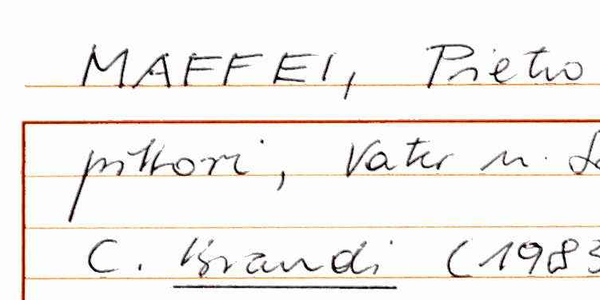 MAFFEI, Pietro
pittori, Vater u.
C. Brandi (1983